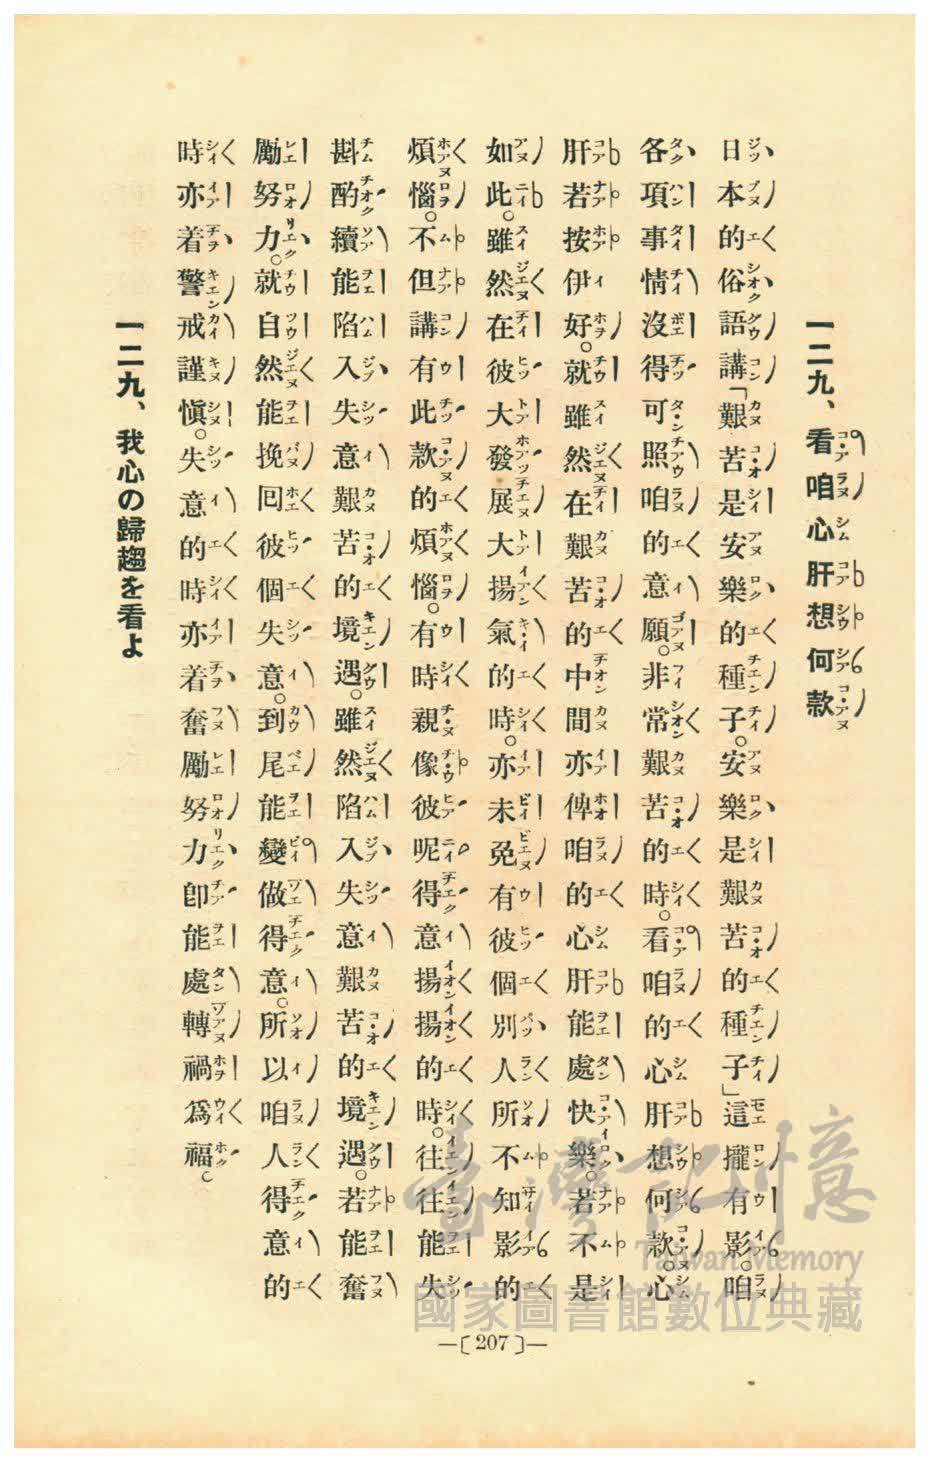 一二九、看咱心肝想何款
日本的俗語講「艱苦是安樂的種子。安樂是艱苦的種子」這攏有影。咱
各項事情沒得可照咱的意願。非常艱苦的時。看咱的心肝想何款。心
肝若按伊好。就雖然在艱苦的中間亦俾咱的心肝能處快樂。若不是
如此。雖然在彼大發展大揚氣的時。亦未免有彼個別人所不知影的
煩惱。不但講有此款的煩惱。有時親像彼呢得意揚揚的時。往往能失
斟酌續能陷入失意艱苦的境遇。雖然陷入失意艱苦的境遇。若能奮
勵努力。就自然能挽囘彼個失意。到尾能變做得意。所以咱人得意的
時亦着警戒謹愼。失意的時亦着奮勵努力卽能處轉禍爲福。
一二九、我心の歸趨を看よ
—〔207〕—
臺灣記憶
Taiwan Memory
國家圖書館數位典藏